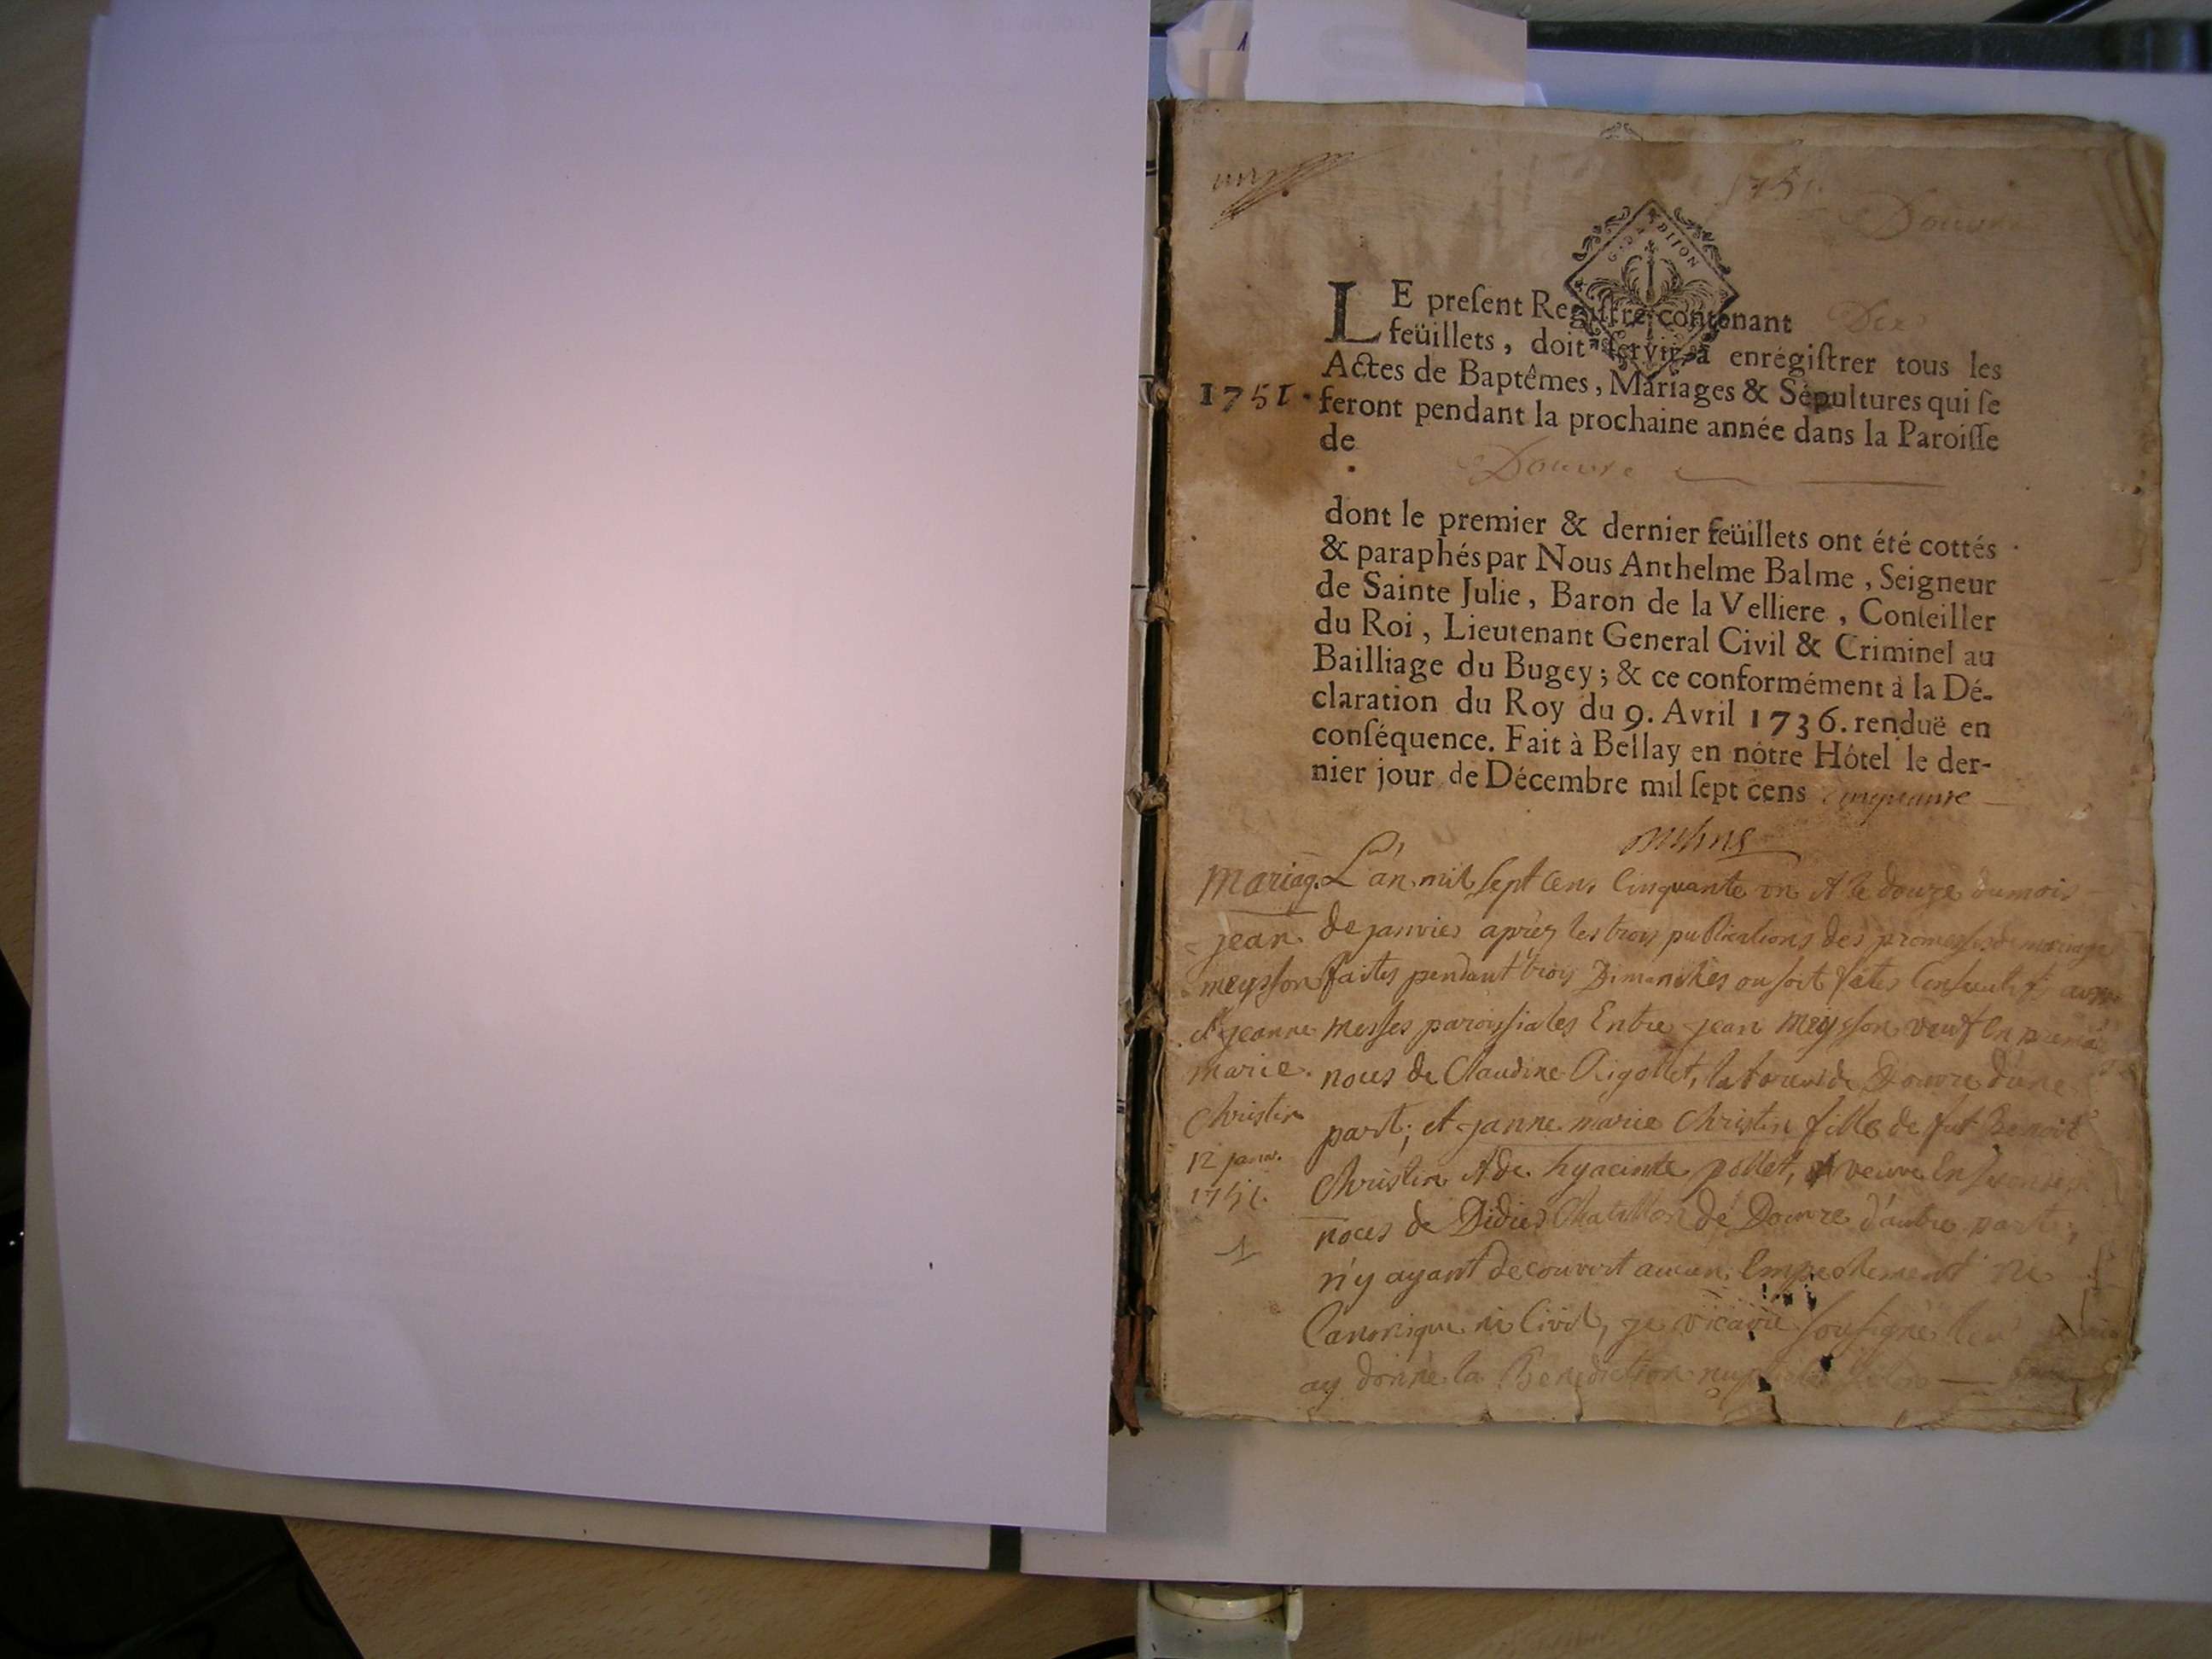 1751.
Douvre
G. DIJON
LE preſent Regiſtre contenant Dix
feüillets, doit ſervir à enrégiſtrer tous les
Actes de Baptêmes, Mariages & Sépultures qui ſe
1751. feront pendant la prochaine année dans la Paroiſſe
de
Douvre
dont le premier & dernier feüillets ont été cottés
& paraphés par Nous Anthelme Balme, Seigneur
de Sainte Julie, Baron de la Velliere, Conſeiller
du Roi, Lieutenant General Civil & Criminel au
Bailliage du Bugey; & ce conformément à la Dé-
claration du Roy du 9. Avril 1736. renduë en
conſéquence. Fait à Bellay en nôtre Hôtel le der-
nier jour de Décembre mil ſept cens Cinquante
Mariag. L'an mil sept cens Cinquante un et le douze du mois
jean de janvier aprèz les trois publications des promesses de mariage
meysson faites pendant trois Dimanches ou soit fetes Consecutifs aux
et jeanne messes paroissiales Entre jean Meysson veuf En
marie noces de Claudine Rigollet, de Douvre d'une
Christin part; et janne marie Christin fille de fut Benoit
12 janv. Christin et de hyacinte pollet, veuve En
1751. noces de Didier Chatillon de Douvre d'autre part;
1
n'y ayant decouvert aucun Empechement ni
Canonique ni Civil, je vicaire sousigné
ay donné la Benediction